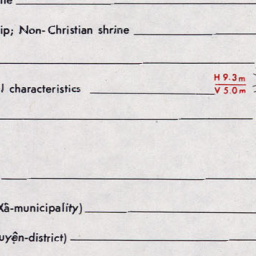 ip; Non-Christian shrine
l characteristics
H 9.3m
V 5.0m
Xã-municipality)
uyện-district)